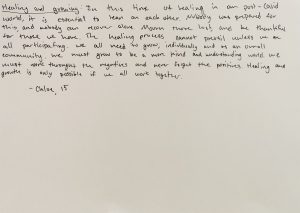 Healing and growing: In this time of healing in an post-covid
world, it is essential to lean on each other. Nobody was prepared for
this and nobody can recover alone. Mourn those lost and be thankful
for those we have. The healing process cannot prevail unless we are
all participating. We all need to grow, individually and as an overall
community. We must grow to be a more kind and understanding world. We
must work through the negatives and never forget the positives. Healing and
growth is only possible if we all work together.
- Chloe, 15